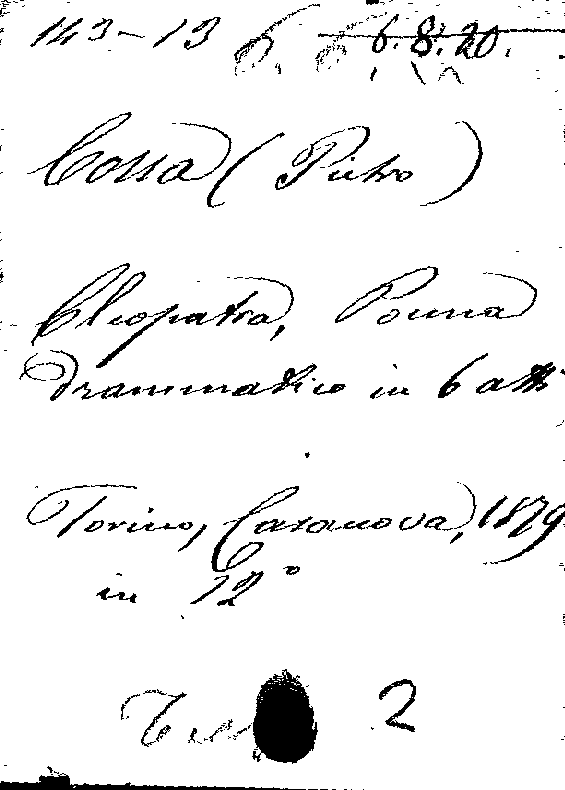 143-13 6. 6. 6.8.20.
Cossa (Pietro)
Cleopatra, Poema
drammatico in 6 atti
Torino, Casanova, 1879
in 12°
2